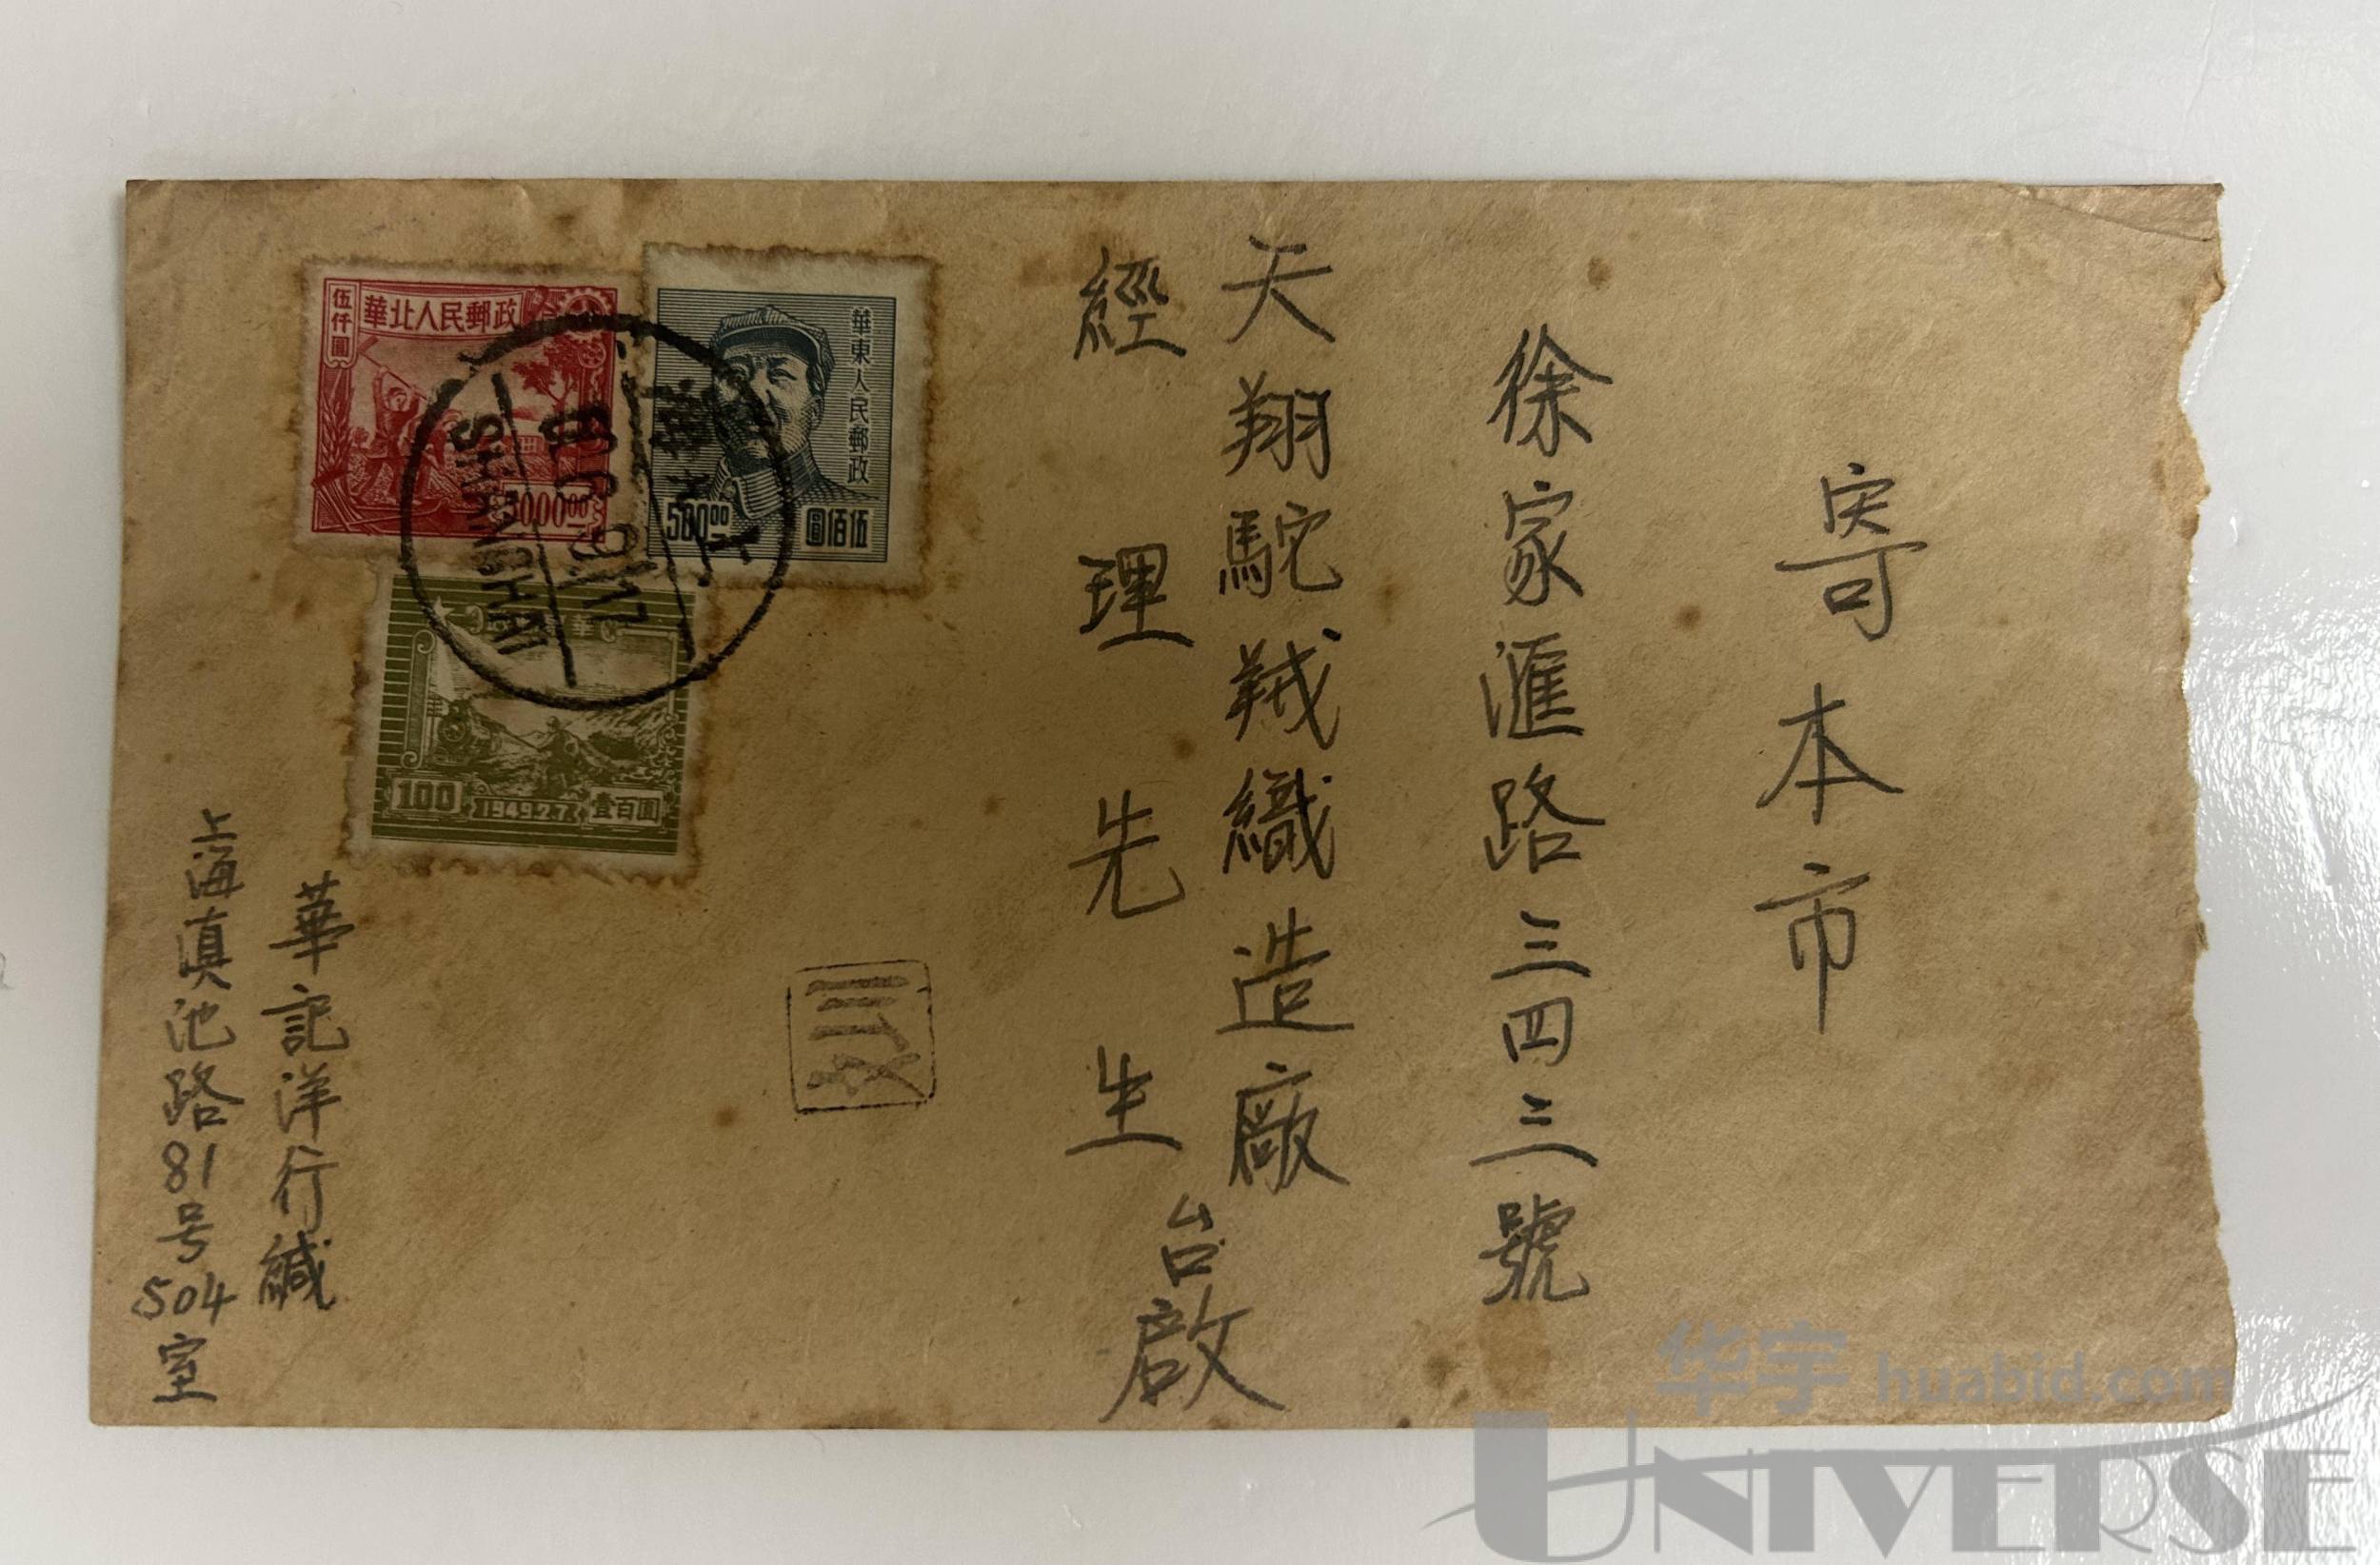 寄本市
徐家滙路三四三號
天翔駝羢織造廠
經理先生
台啟
華記洋行緘
上海滇池路81号504室
伍仟圓
華北人民郵政
5000.00
華東人民郵政
500.00
伍佰圓
100
1949.2.7
壹百圓
SHANGHAI
华宇 huabid.com
UNIVERSE